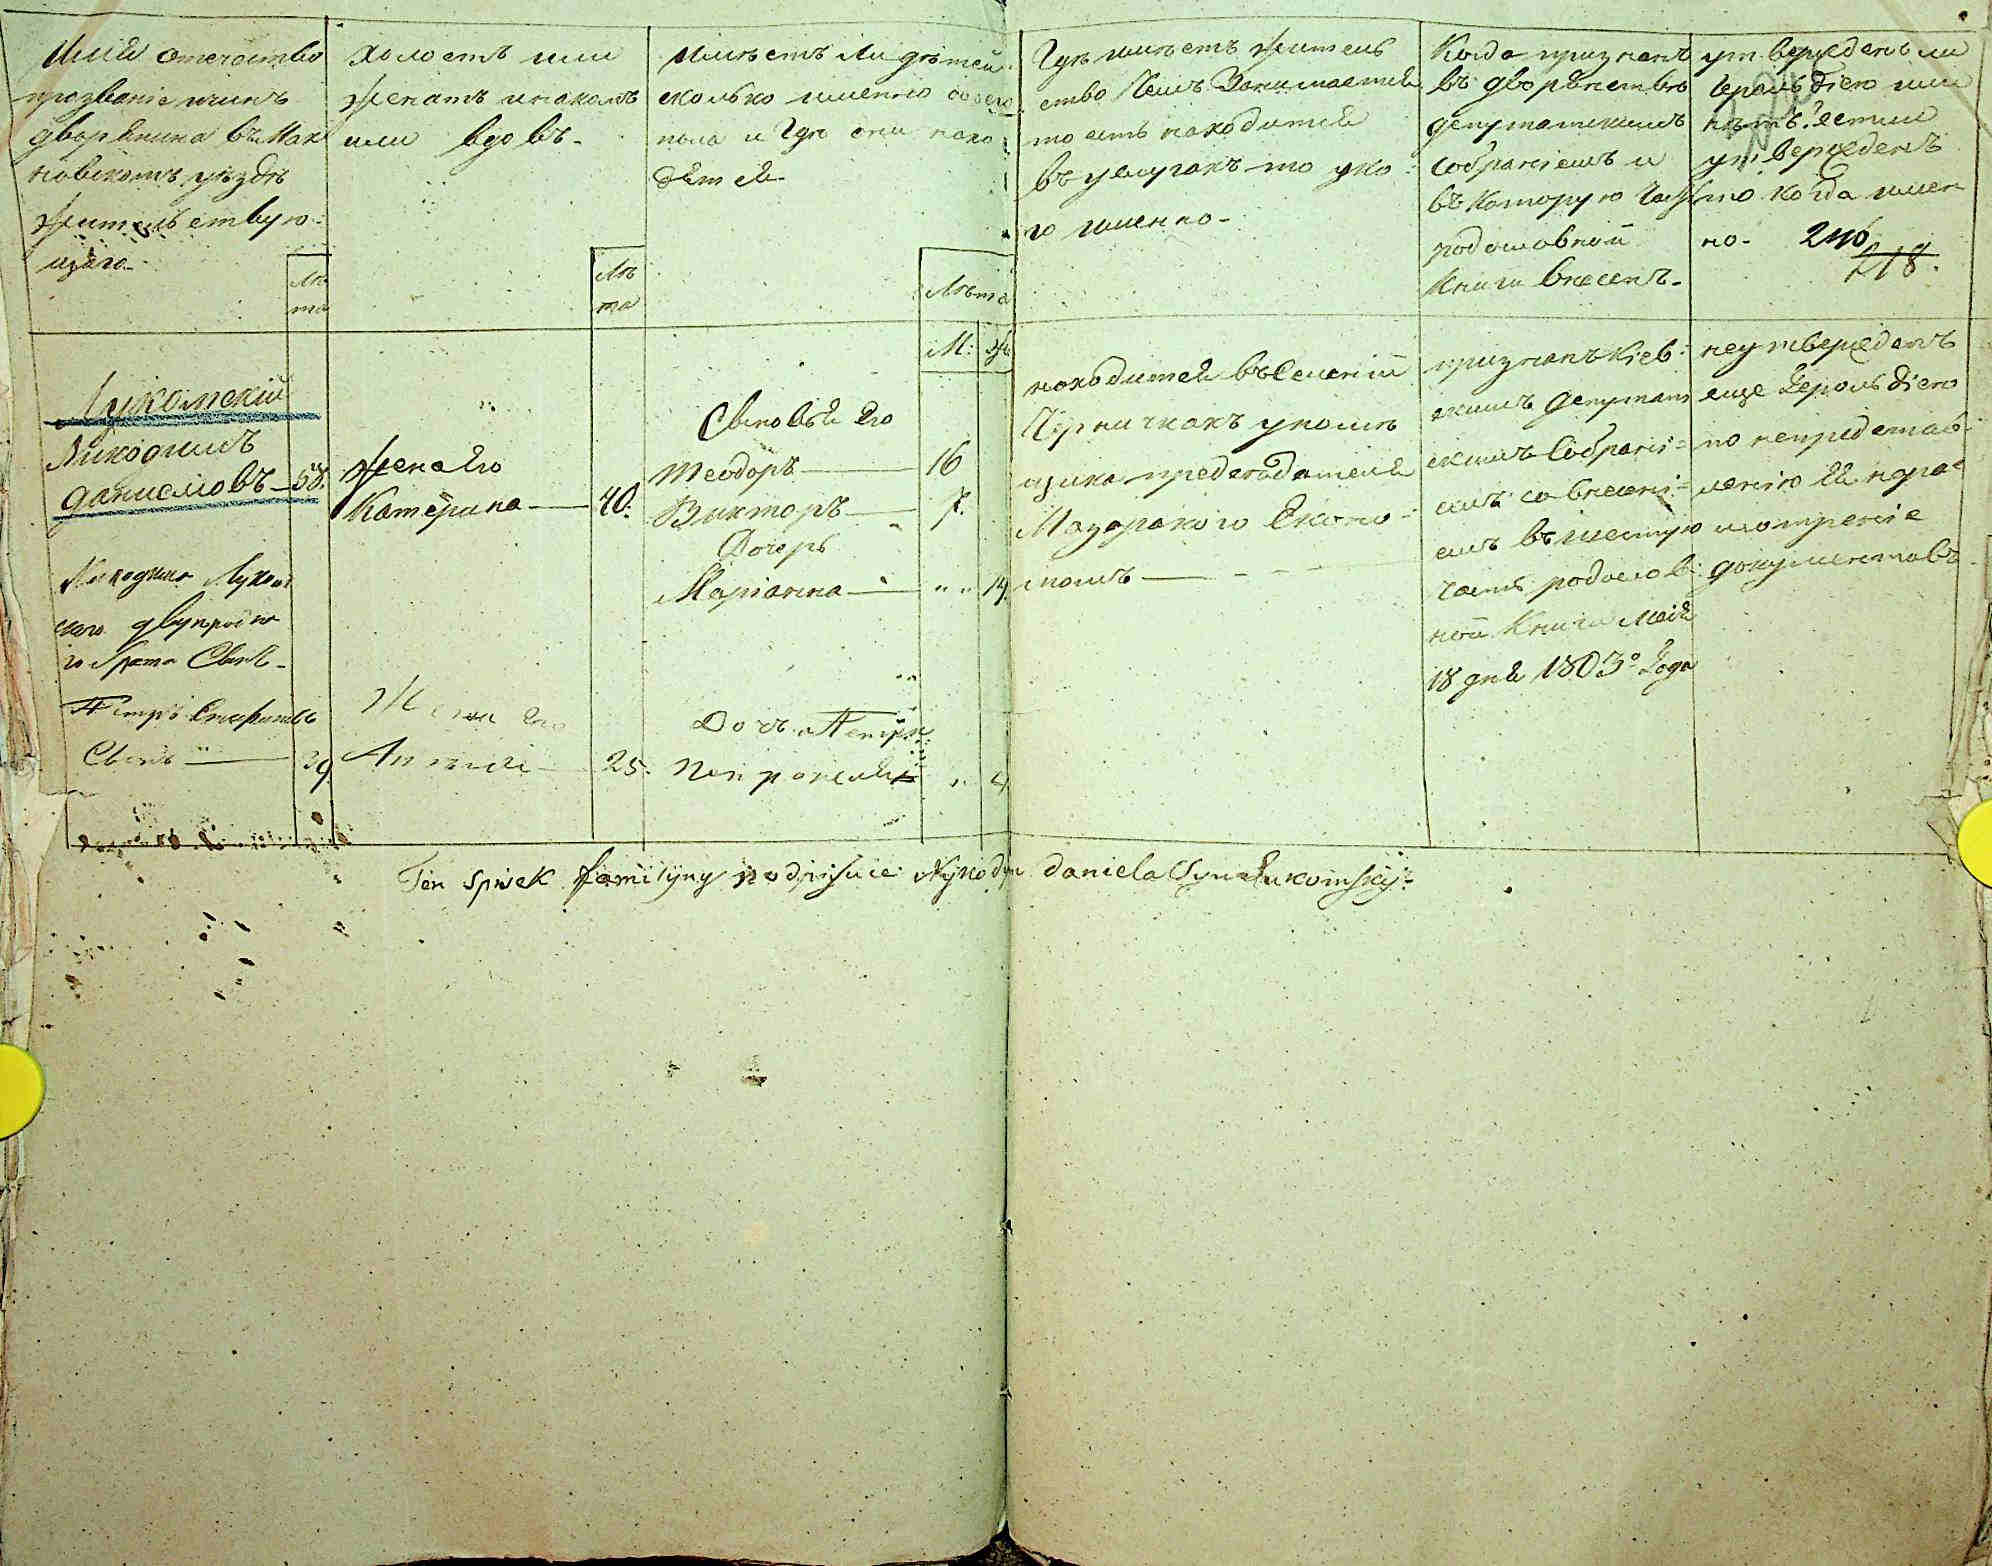 Имя отечество
прозвание и чинъ
дворянина въ Мах
новскомъ уѣздѣ
жительствую-
щаго
Лѣ
та
Холостъ или
женатъ и на комъ
или вдовъ.
Лѣ
та
Имѣетъ ли дѣтей
сколько именно обоего
пола и Где они нахо
дятся
Лѣта
М: Ж:
Где имѣетъ житель
ство Чемъ Занимается
то есть находится
въ услугахъ то у ко
го именно.
Когда признанъ
въ дворянство
депутатскимъ
собраниемъ и
въ которую часть
родословной
книги внесенъ.
утвержденъ ли
Герольдіею или
нѣтъ? естли
утвержденъ
то когда имен
но. 246
218.
Лукомский
Никодимъ
Даниеловъ 58.
Жена его
Катерина 40.
Сыновья его
Теодоръ 16
Викторъ 7.
Дочерь
Марианна " " 14.
находится въ Селении
Черничкахъ у помѣ
щика председателя
Мазараког о Еконо
момъ
признанъ Киев
скимъ Депутат
скимъ Собрани
емъ со внесені
емъ въ шестую
часть родослов
ной книги Мая
18 дня 1803го Года
неутвержденъ
еще Герольдіею
по непредстав
лению Ея на ра
смотрение
документовъ
Никодима Луком
ского двупройно
го брата Сынъ
Петръ
Сынъ 29.
Жена его
25.
Дочь Петра
Петронеля " 4
Ten spisek familijny podpisuie Nykodym daniela Syn Łukomsky